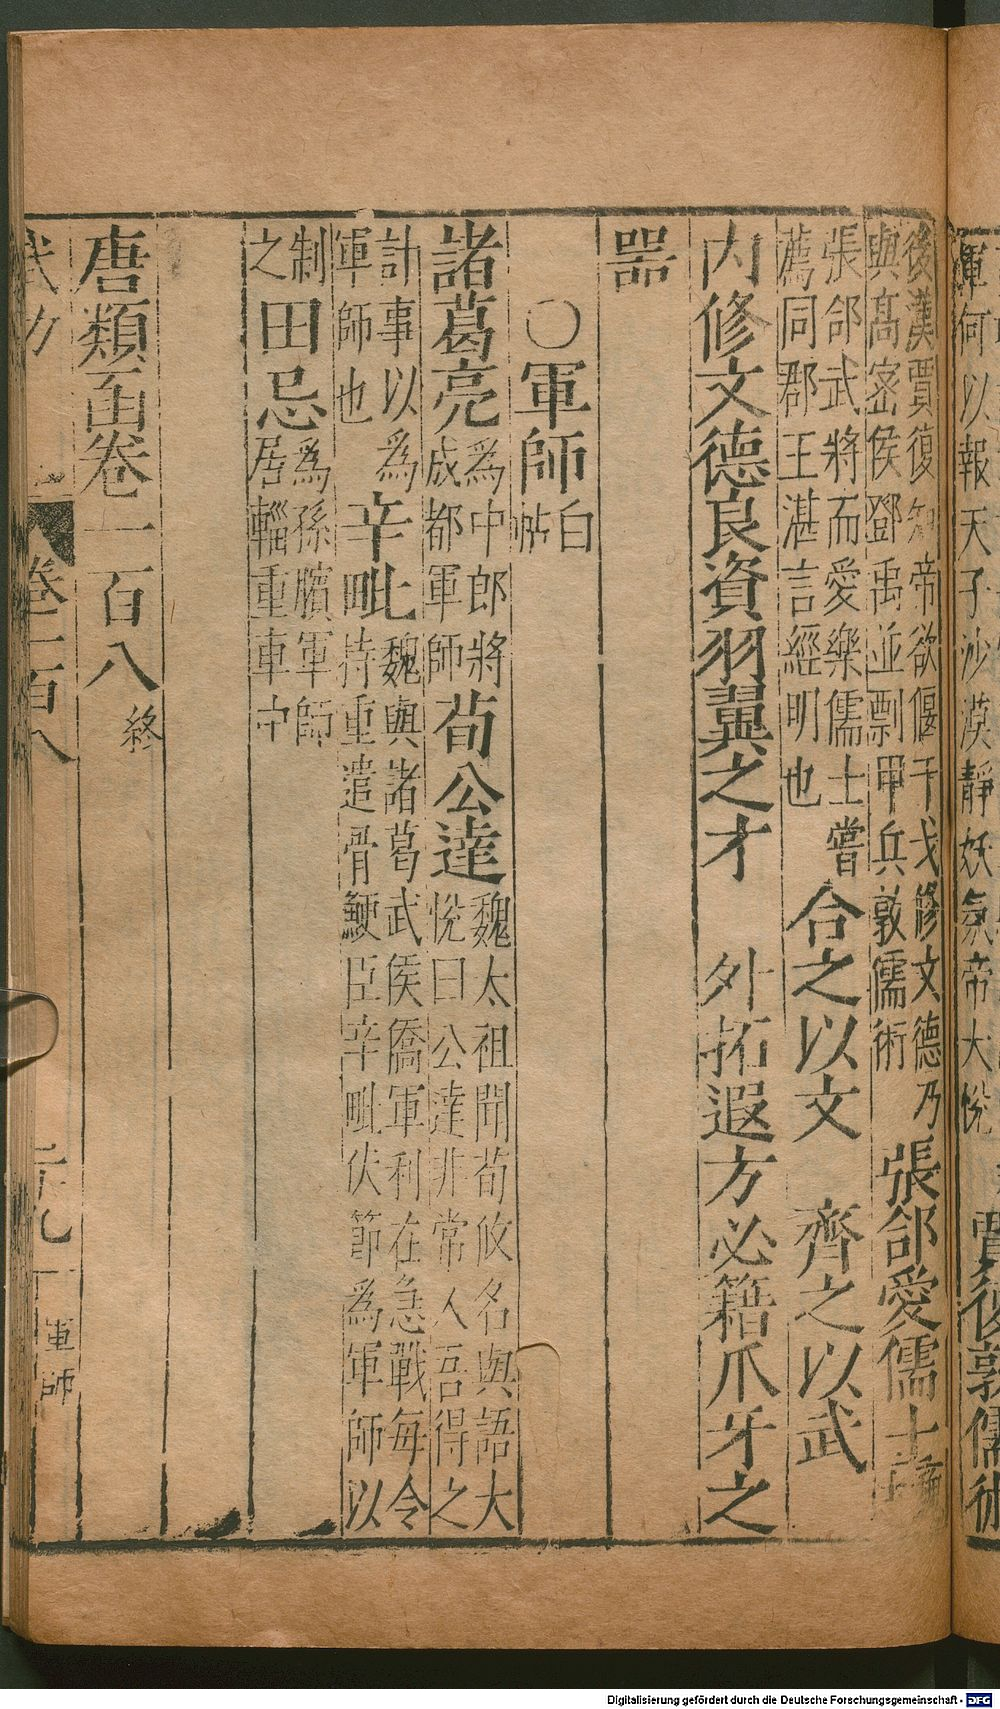 何以報天子沙漠靜妖氛帝大悅
賈復敦儒術
後漢賈復知帝欲偃干戈修文德乃
與髙密侯鄧禹並剽甲兵敦儒術
張郃愛儒士
張郃武將而愛樂儒士嘗
薦同郡王湛言經明也
合之以文　齊之以武
內修文德良資羽翼之才　外拓遐方必籍爪牙之
噐
○軍師
白
帖
諸葛亮
為中郎將
成都軍師
荀公達
魏太祖聞荀攸名與語大
悅曰公達非常人吾得之
計事以為
軍師也
辛毗
魏與諸葛武侯僑軍利在急戰每令
持重遣骨鯁臣辛毗伏節為軍師以
制
之
田忌
為孫臏軍師
居輜重車中
唐類函卷一百八終
武功
卷一百八
軍師
Digitalisierung gefördert durch die Deutsche Forschungsgemeinschaft - DFG